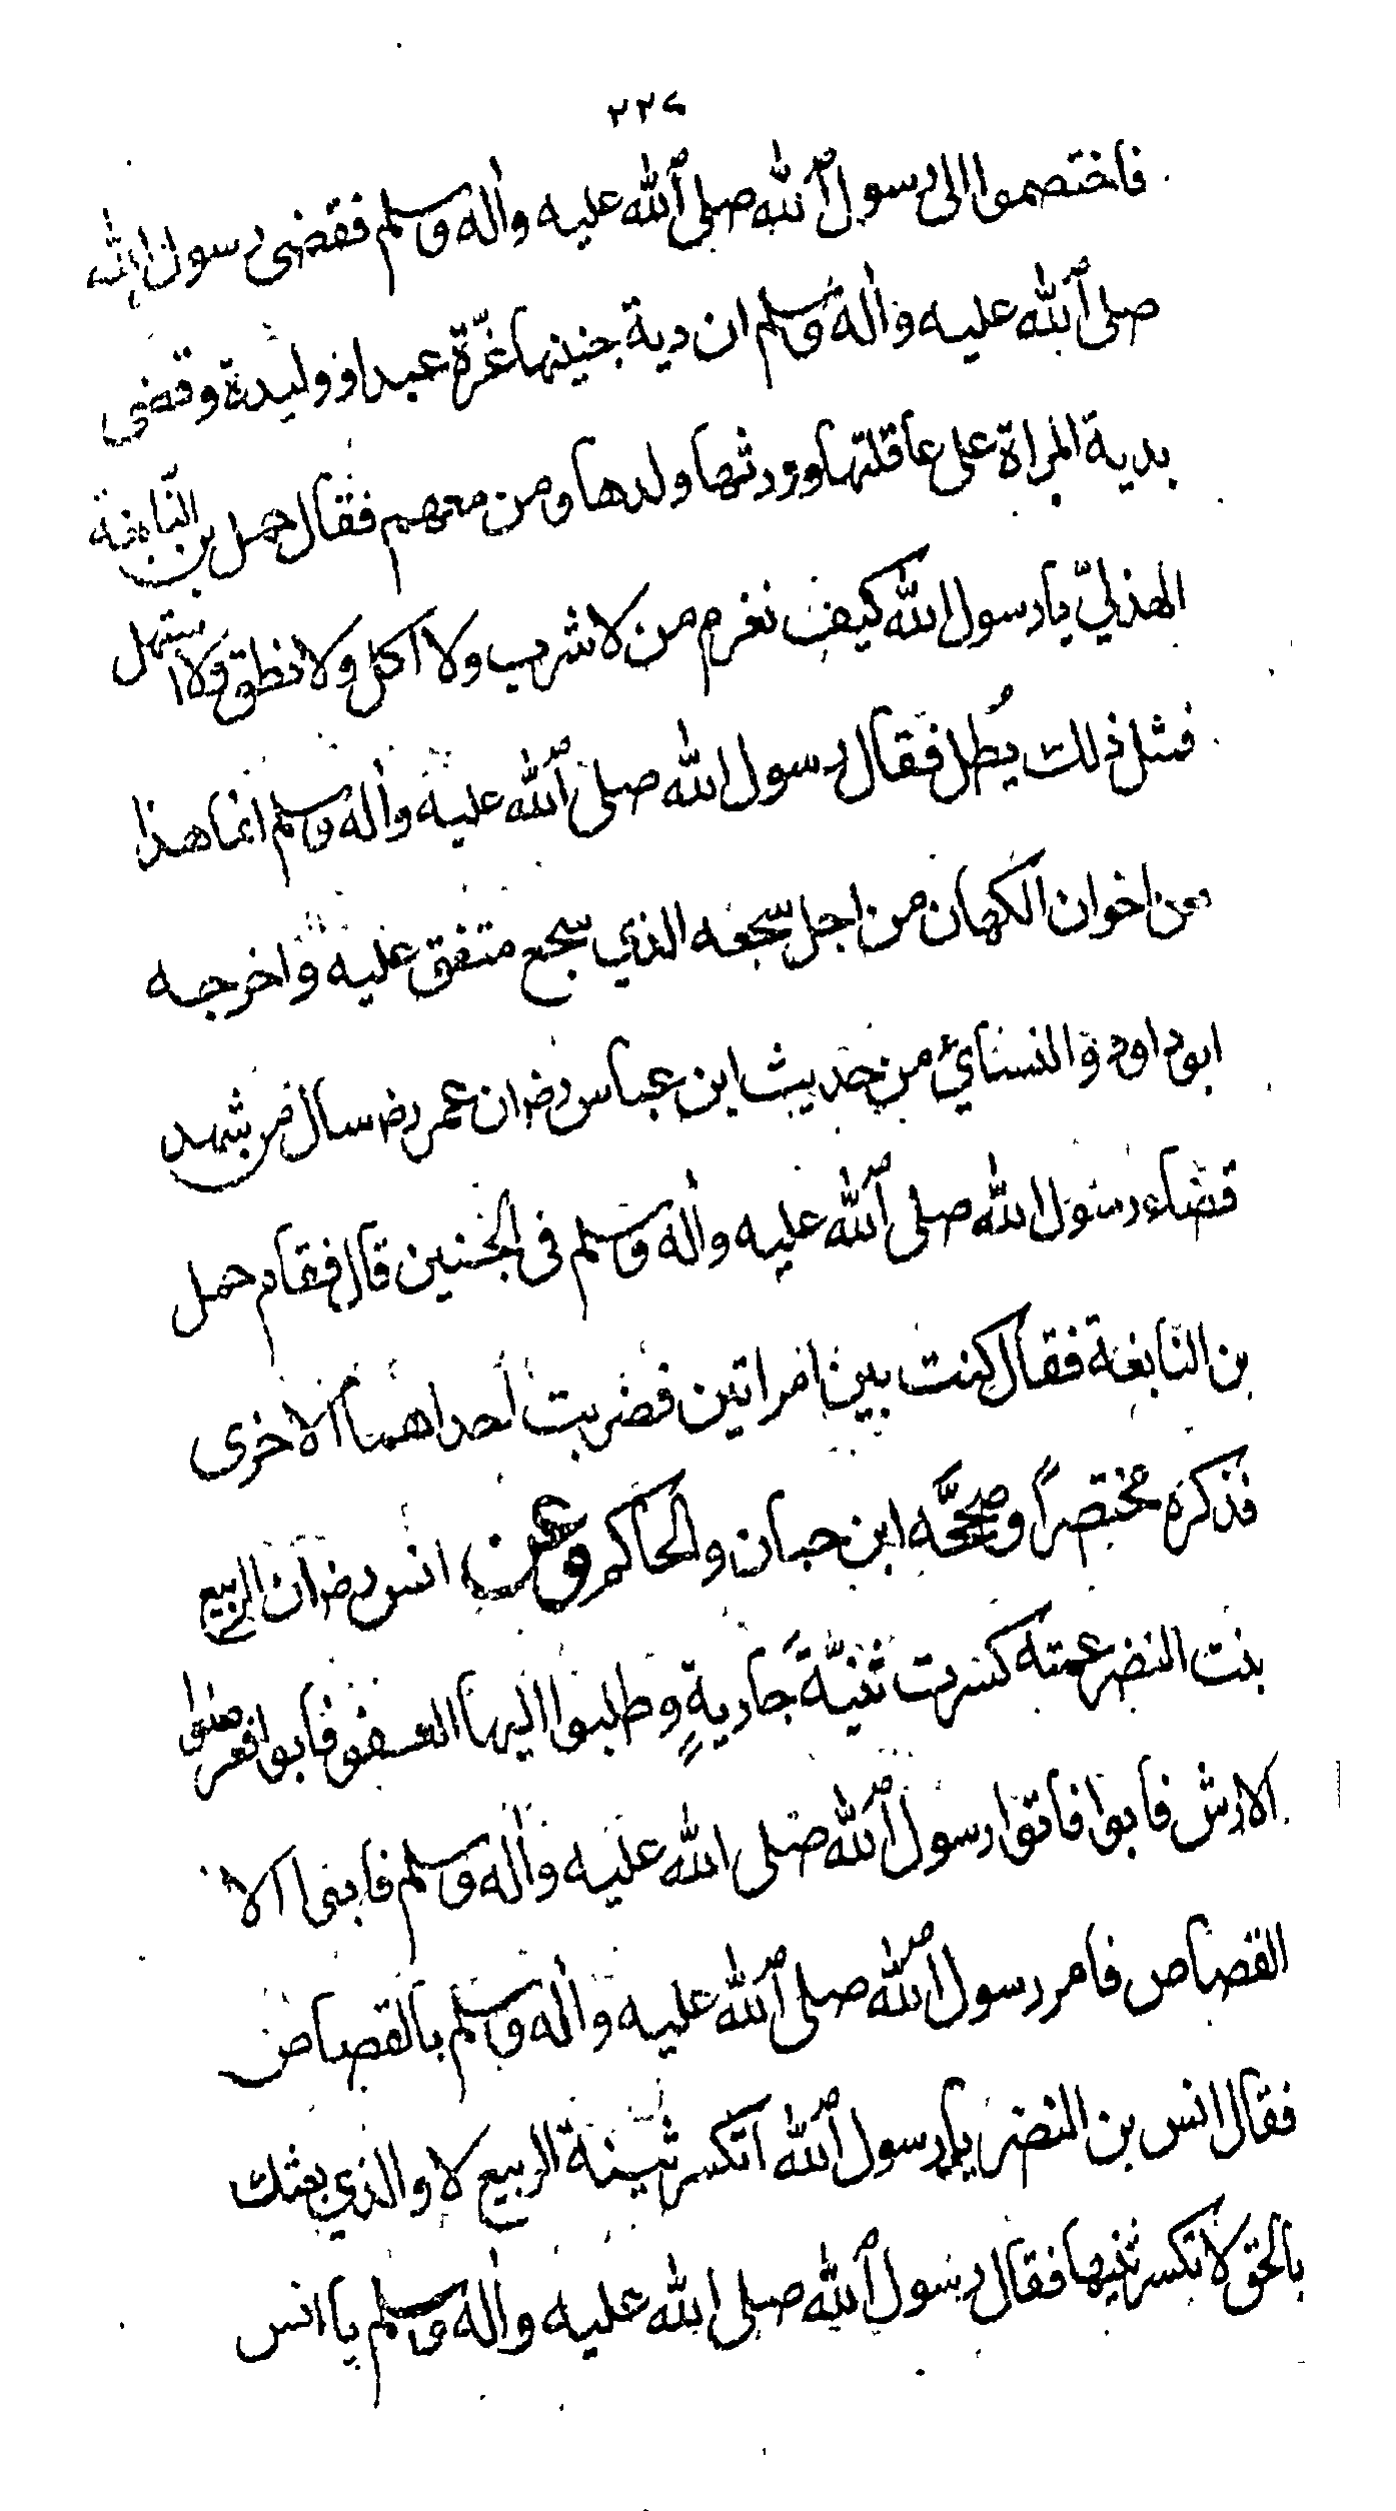 ٢٢٧
فاختصموا الى رسول الله صلى الله عليه واله وسلم فقضى رسول الله
صلى الله عليه واله وسلم ان دية جنينها غرّة عبد او وليدة وقضى
بدية المراة على عاقلتها وورثها ولدها ومن معهم فقال حمل بن النابغة
الهذليّ يا رسول الله كيف نغرم من لا شرب ولا اكل ولا نطق ولا استهل
فمثل ذلك يُطل فقال رسول الله صلى الله عليه واله وسلم انما هذا
من اخوان الكهان من اجل سجعه الذي سجع متفق عليه واخرجه
ابو داود والنسائي من حديث ابن عباس رضـ ان عمر رضـ سال من شهد
قضاء رسول الله صلى الله عليه واله وسلم في الجنين قال فقام حمل
بن النابغة فقال كنت بين امراتين فضربت احداهما الاخرى
فذكره مختصراً وصححَّه ابن حبان والحاكم وعن انس رضـ ان الربيع
بنت النضر عمته كسرت ثنيّةَ جاريةٍ وطلبوا اليها العفو فابوا فعرضوا
الارش فابوا فاتوا رسول الله صلى الله عليه واله وسلم فابى الا
القصاص فامر رسول الله صلى الله عليه واله وسلم بالقصاص
فقال انس بن النضر يا رسول الله اتكسر ثنية الربيع لا والذي بعثك
بالحق لا تكسر ثنيتها فقال رسول الله صلى الله عليه واله وسلم يا انس